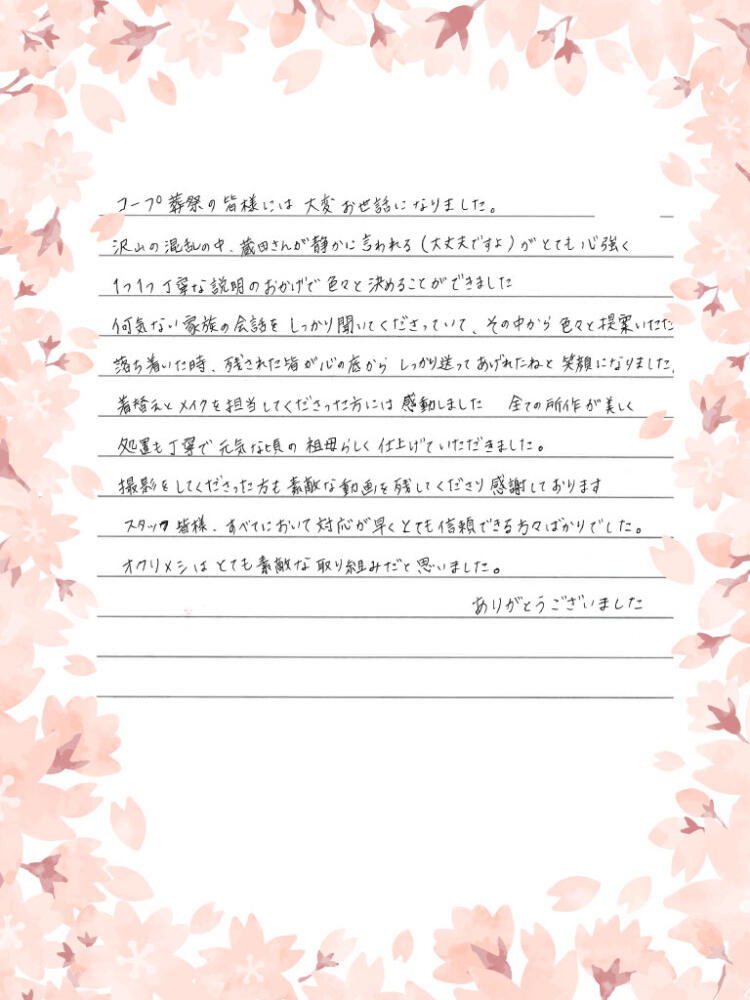 コープ葬祭の皆様には 大変お世話になりました。
沢山の混乱の中、蔵田さんが静かに言われる(大丈夫ですよ)がとても心強く
1つ1つ丁寧な説明のおかげで色々と決めることができました
何気ない家族の会話をしっかり聞いてくださっていて、その中から色々と提案いただ
落ち着いた時、残された皆が心の底から しっかり送ってあげれたねと笑顔になりました。
着替えとメイクを担当してくださった方には感動しました 全ての所作が美しく
処置も丁寧で元気な頃の祖母らしく仕上げていただきました。
撮影をしてくださった方も素敵な動画を残してくださり感謝しております
スタッフ皆様、すべてにおいて対応が早くとても信頼できる方々ばかりでした。
オクリメシはとても素敵な取り組みだと思いました。
ありがとうございました